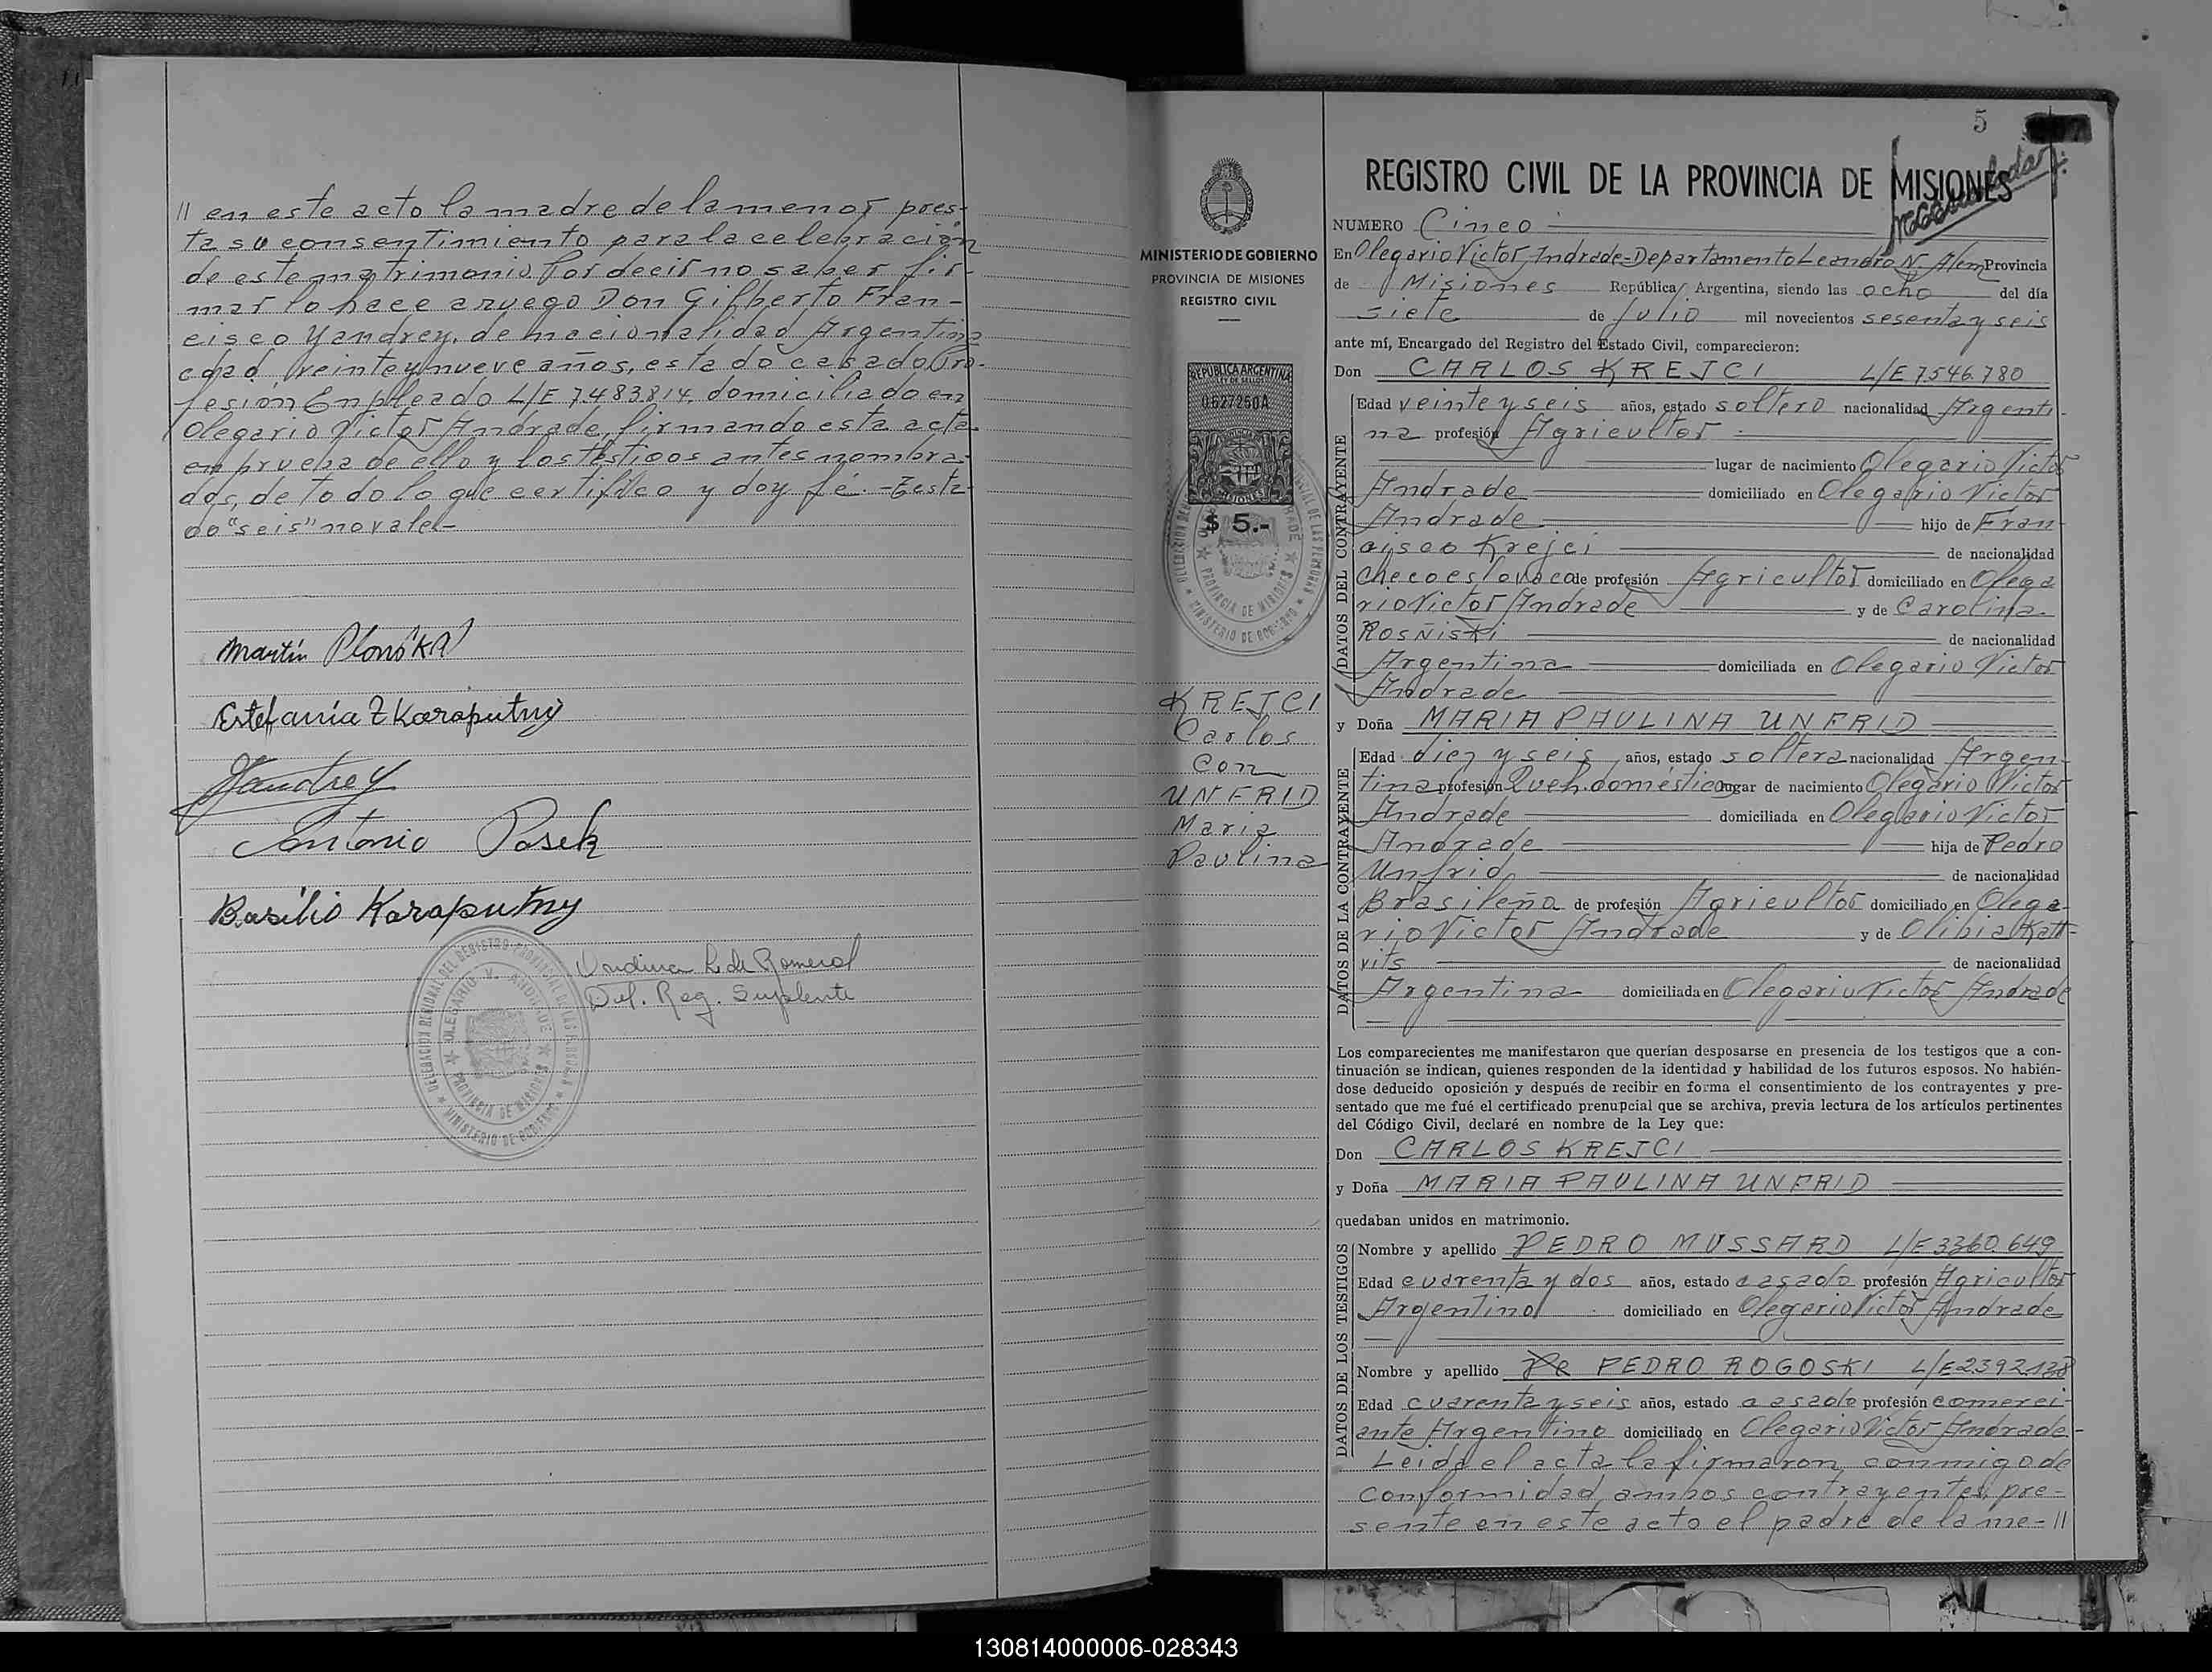 // en este acto la madre de la menor pres-
ta su consentimiento para la celebración
de este matrimonio. Por decir no saber fir-
mar lo hace a ruego Don Gilberto Fran-
cisco Yandrey, de nacionalidad Argentina
edad veinte y nueve años, estado casado, pro-
fesión Empleado L/E 7.483.814, domiciliado en
Olegario Victor Andrade, firmando esta acta
en prueba de ello y los testigos antes nombra-
dos, de todo lo que certifico y doy fé.- Testa-
do "seis" no vale.-
Martín Plonska
Estefania Z Karaputny
Yandrey
Antonio Pasek
Basilio Karaputny
L. de Romeral
Del. Reg. Suplente
DELEGACION REGIONAL DEL REGISTRO PROVINCIAL DE LAS PERSONAS
OLEGARIO V. ANDRADE
PROVINCIA DE MISIONES
MINISTERIO DE GOBIERNO
MINISTERIO DE GOBIERNO
PROVINCIA DE MISIONES
REGISTRO CIVIL
REPUBLICA ARGENTINA
LEY DE SELLOS
0.627250A
MISIONES
$ 5.-
PROVINCIA DE MISIONES
MINISTERIO DE GOBIERNO
KREJCI
Carlos
con
UNFRID
Maria
Paulina
5
REGISTRO CIVIL DE LA PROVINCIA DE MISIONES
NUMERO Cinco
En Olegario Victor Andrade=Departamento Leandro N. Alem Provincia
de Misiones República Argentina, siendo las ocho del día
siete de Julio mil novecientos sesenta y seis
ante mí, Encargado del Registro del Estado Civil, comparecieron:
Don CARLOS KREJCI L/E 7.546.780
DATOS DEL CONTRAYENTE
Edad veinte y seis años, estado soltero nacionalidad Argenti-
na profesión Agricultor
lugar de nacimiento Olegario Victor
Andrade domiciliado en Olegario Victor
Andrade hijo de Fran-
cisco Krejci de nacionalidad
checoeslovaca de profesión Agricultor domiciliado en Olega
rio Victor Andrade y de Carolina
Rosñiski de nacionalidad
Argentina domiciliada en Olegario Victor
Andrade
y Doña MARIA PAULINA UNFRID
DATOS DE LA CONTRAYENTE
Edad diez y seis años, estado soltera nacionalidad Argen-
tina profesión Queh. doméstico lugar de nacimiento Olegario Victor
Andrade domiciliada en Olegario Victor
Andrade hija de Pedro
Unfrid de nacionalidad
Brasileña de profesión Agricultor domiciliado en Olega-
rio Victor Andrade y de Olibia Katt-
vits de nacionalidad
Argentina domiciliada en Olegario Victor Andrade
Los comparecientes me manifestaron que querían desposarse en presencia de los testigos que a con-
tinuación se indican, quienes responden de la identidad y habilidad de los futuros esposos. No habién-
dose deducido oposición y después de recibir en forma el consentimiento de los contrayentes y pre-
sentado que me fué el certificado prenupcial que se archiva, previa lectura de los artículos pertinentes
del Código Civil, declaré en nombre de la Ley que:
Don CARLOS KREJCI
y Doña MARIA PAULINA UNFRID
quedaban unidos en matrimonio.
DATOS DE LOS TESTIGOS
Nombre y apellido PEDRO MUSSARD L/E 3360.649
Edad cuarenta y dos años, estado casado profesión Agricultor
Argentino domiciliado en Olegario Victor Andrade
Nombre y apellido PEDRO ROGOSKI L/E 2.392.138
Edad cuarenta y seis años, estado casado profesión comerci-
ante Argentino domiciliado en Olegario Victor Andrade-
Leida el acta la firmaron conmigo de
conformidad ambos contrayentes, pre-
sente en este acto el padre de la me- //
130814000006-028343